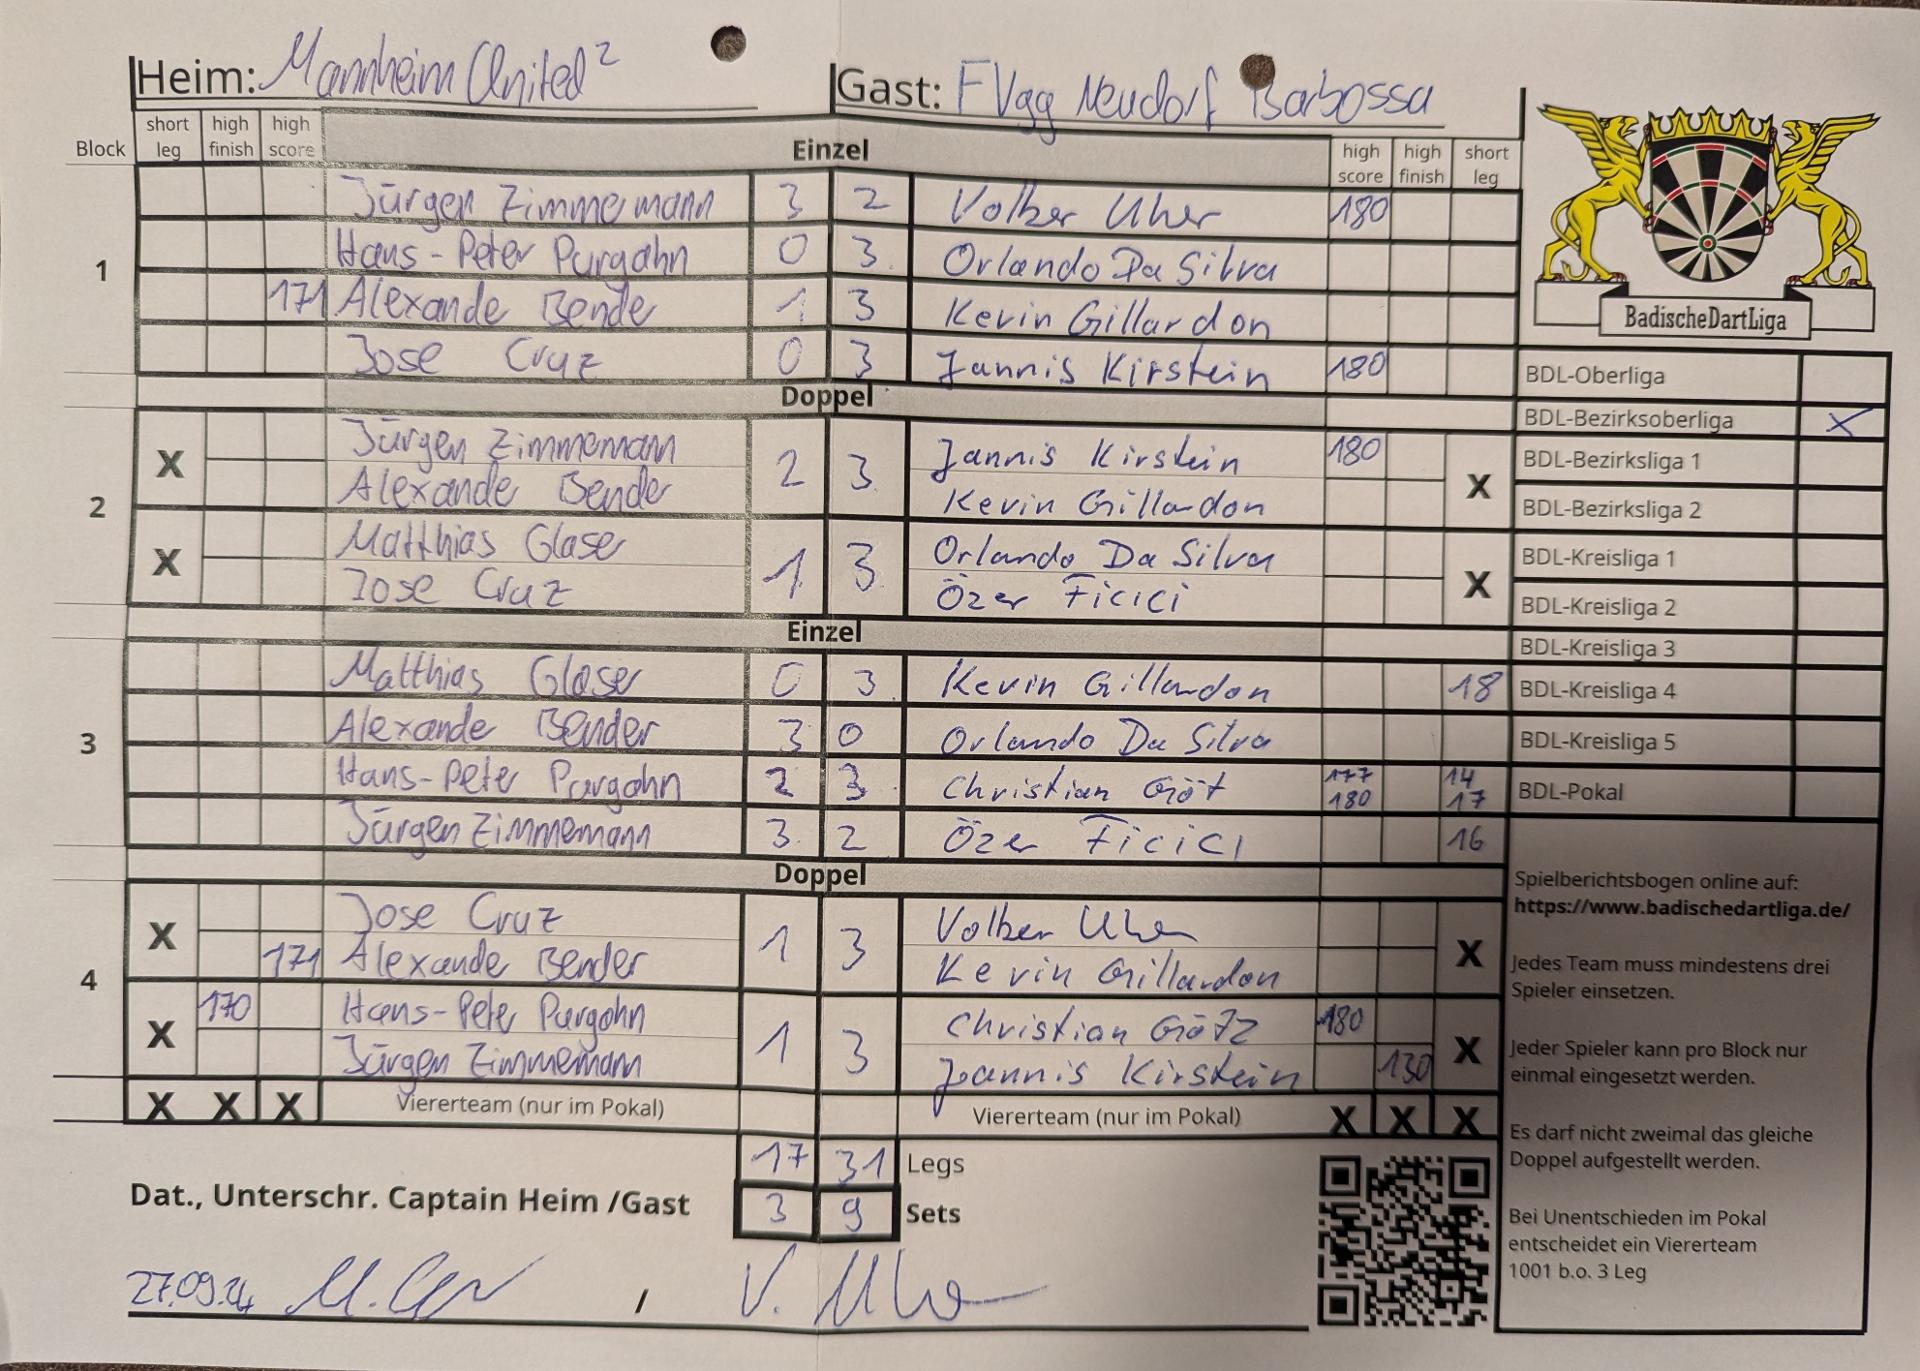 Heim: Mannheim United 2 Gast: FVgg Neudorf Barbossa
Block short leg high finish high score Einzel high score high finish short leg
1
Jürgen Zimmemann 3 2 Volker Uher 180
Hans-Peter Purgahn 0 3 Orlando Da Silva
171 Alexande Bende 1 3 Kevin Gillardon
Jose Cruz 0 3 Jannis Kirstein 180
Doppel
2
X Jürgen Zimmemann 2 3 Jannis Kirstein 180 X
Alexande Bender Kevin Gillardon
X Matthias Glaser 1 3 Orlando Da Silva X
Jose Cruz Özer Ficici
Einzel
3
Matthias Glaser 0 3 Kevin Gillardon 18
Alexande Bender 3 0 Orlando Da Silva
Hans-Peter Purgahn 2 3 Christian Göt 177 180 14 17
Jürgen Zimmemann 3 2 Özer Ficici 16
Doppel
4
X Jose Cruz 1 3 Volker Uher X
171 Alexande Bender Kevin Gillardon
X 170 Hans-Peter Purgahn 1 3 Christian Götz 180 X
Jürgen Zimmemann Jannis Kirstein 130
X X X Viererteam (nur im Pokal) Viererteam (nur im Pokal) X X X
17 31 Legs
3 9 Sets
Dat., Unterschr. Captain Heim /Gast
27.09.24 / V. Uher
BadischeDartLiga
BDL-Oberliga
BDL-Bezirksoberliga X
BDL-Bezirksliga 1
BDL-Bezirksliga 2
BDL-Kreisliga 1
BDL-Kreisliga 2
BDL-Kreisliga 3
BDL-Kreisliga 4
BDL-Kreisliga 5
BDL-Pokal
Spielberichtsbogen online auf:
https://www.badischedartliga.de/
Jedes Team muss mindestens drei
Spieler einsetzen.
Jeder Spieler kann pro Block nur
einmal eingesetzt werden.
Es darf nicht zweimal das gleiche
Doppel aufgestellt werden.
Bei Unentschieden im Pokal
entscheidet ein Viererteam
1001 b.o. 3 Leg